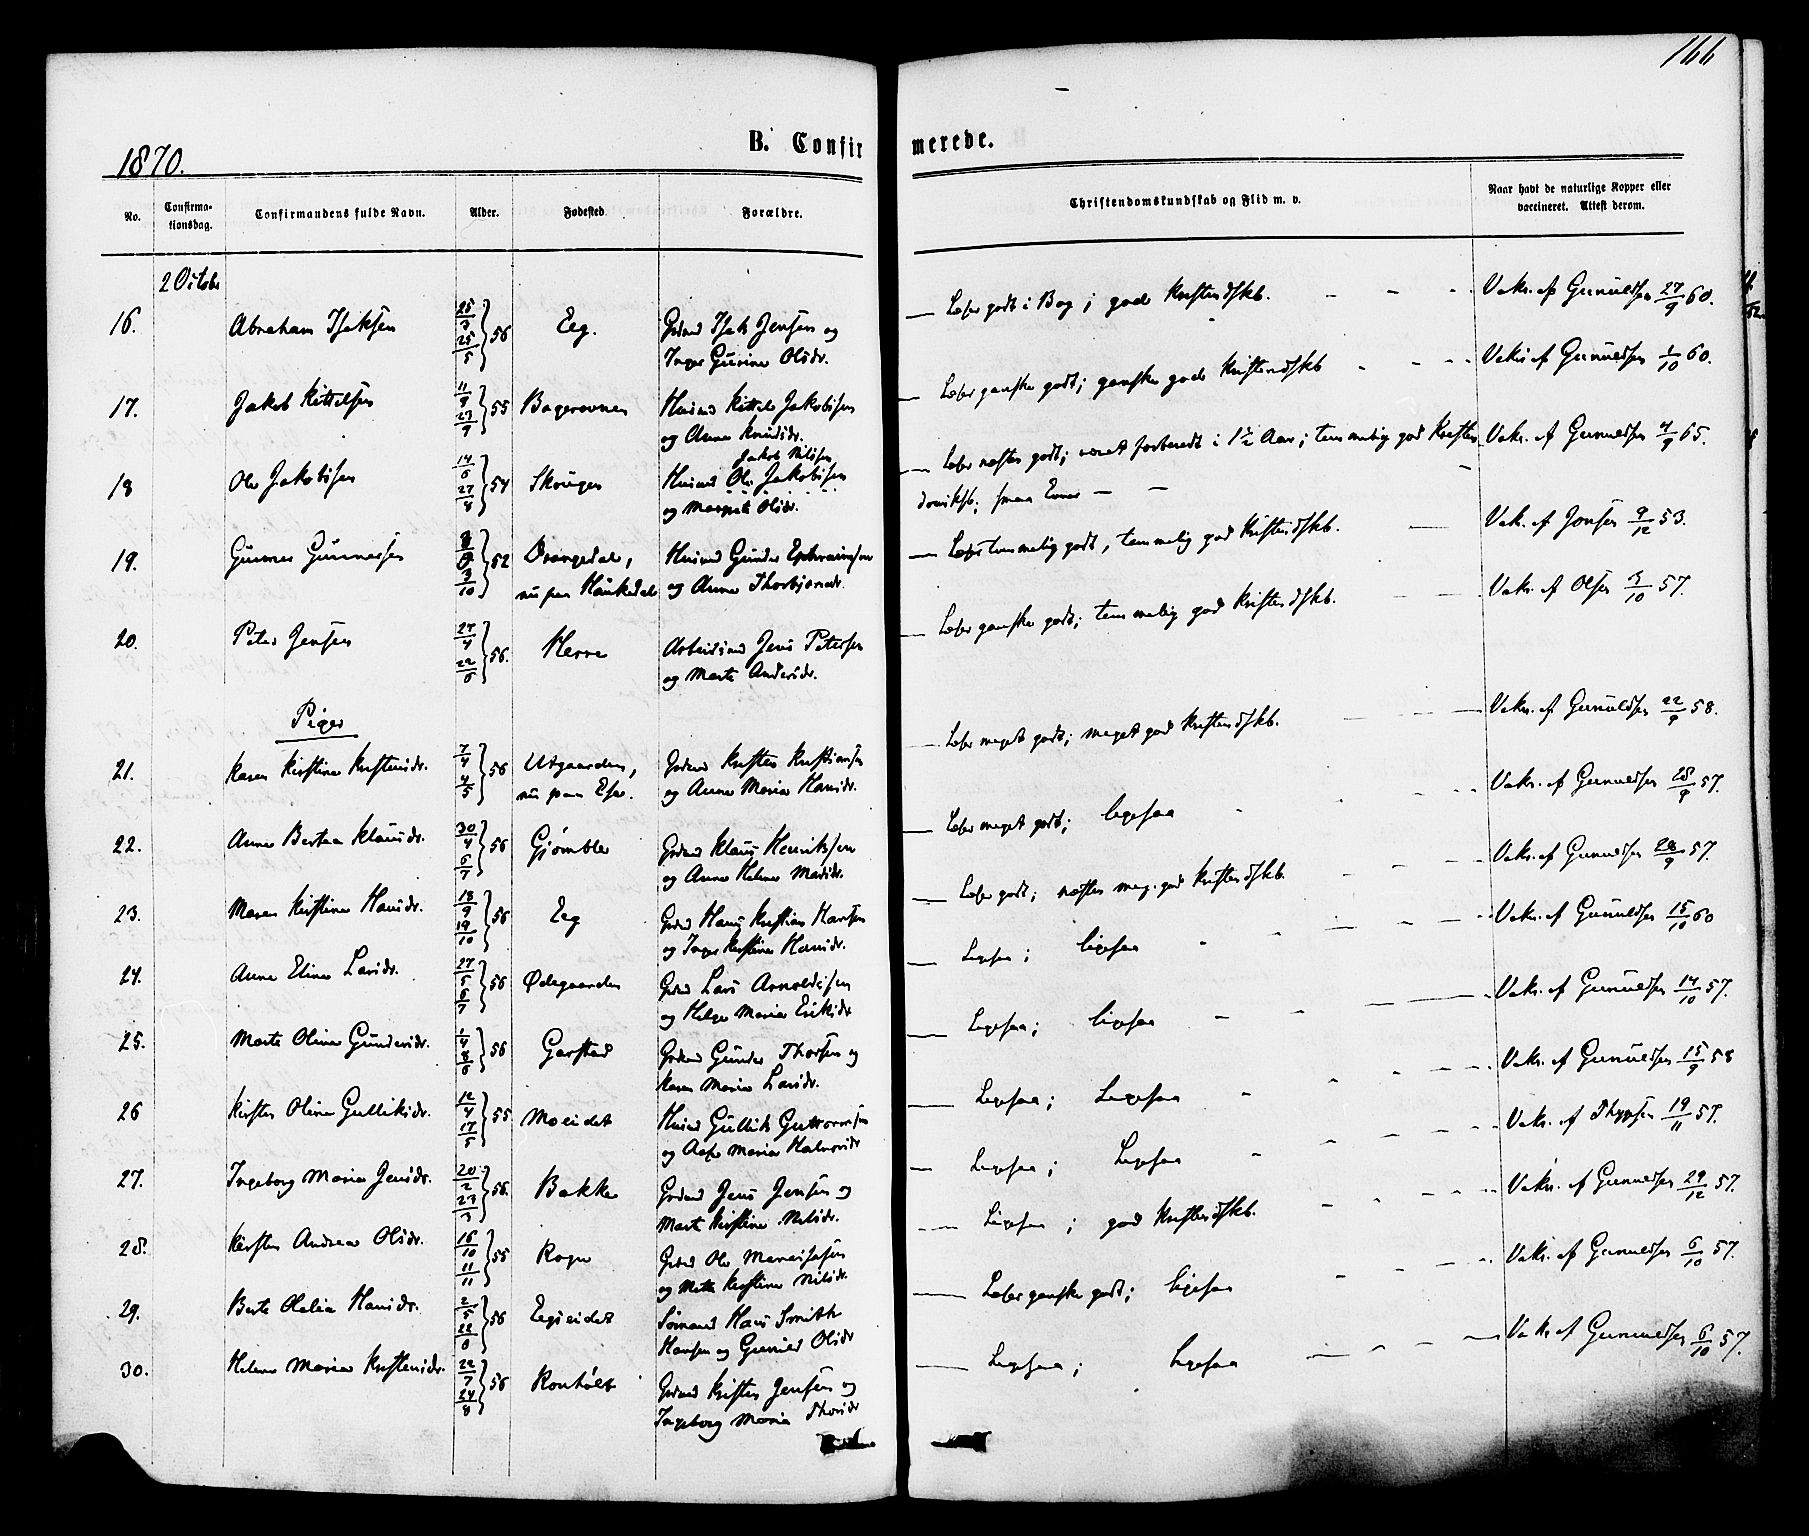 166
1870.
B. Confirmerede.
No.
Confirmationsdag.
Confirmandens fulde Navn.
Alder.
Fødested
Forældre.
Christendomskundskab og Flid m. v.
Naar havt de naturlige Kopper eller vaccineret. Attest derom.
2 Octobr
16. Abraham Isaksen 25/3 25/5 56 Eeg. Grdmd Isak Jensen og
Inger Gurine Olsdr.
Læser godt i Bog; gode Kristendskb. Vakc. af Gunuldsen 27/9 60.
17. Jakob Kittelsen 11/8 23/9 55 Bagerovnen Husmd Kittel Jakobsen
og Anne Knudsdr.
Læser ganske godt; ganske gode Kristendskb Vakc. af Gunuldsen 1/10 60.
18 Ole Jakobsen 14/6 27/8 54 Skougen Husmd Ole Jakobsen
Jakob Nilsen
og Margit Olsdr.
Læser næsten godt; været forberedt i 1 1/2 Aar; temmelig god Kristendomskb; smaa Evner Vakc. af Gunuldsen 4/9 65.
19. Gunner Gunnersen 3/10 52 Drangedal,
nu paa Haukedal
Husmd Gunder Ephraimsen
og Anne Thorbjørnsdr.
Læser temmelig godt, temmelig god Kristendskb. Vak. af Jonsen 9/12 53.
20. Peter Jensen 27/4 22/6 56. Herre Arbeidsmd Jens Petersen
og Marte Andersdr.
Læser ganske godt; temmelig god Kristendskb. Vakc. af Olsen 3/10 57.
Piger
21. Karen Kirstine Kristensdr. 7/4 4/5 56 Utgaarden,
nu paa
Grdmd Kristen Kristiansen
og Anne Maria Hansdr.
Læser meget godt; meget god Kristendskb. Vakc. af Gunuldsen 22/9 58.
22. Anne Bertea Klausdr. 30/4 6/7 56 Gjømble Grdmd Klaus Henriksen
og Anne Helene Madsdr.
Læser meget godt; ligesaa Vakc. af Gunuldsen 28/9 57.
23. Maren Kirstine Hansdr. 18/9 19/10 56 Eeg Grdmd Hans Kristian Hansen
og Inger Kirstine Hansdr.
Læser godt; næsten meg. god Kristendskb. Vakc. af Gunuldsen 28/9 57.
24. Anne Eline Larsdr. 27/5 6/7 56 Ødegaarden Grdmd Lars Arnoldsen
og Helge Maria Eriksdr
Ligesaa; ligesaa Vakc. af Gunuldsen 15/10 60
25. Marte Oline Gundersdr. 1/4 8/6 56 Garstad Grdmd Gunder Thorsen og
Karen Maria Larsdr.
Ligesaa; ligesaa Vakc. af Gunuldsen 14/10 57.
26 Kirsten Oline Gulliksdr. 12/4 17/5 55 Moeidet Husmd Gullik Guttormsen
og Aase Maria Halvorsdr
Ligesaa; Ligesaa Vakc. af Gunuldsen 15/9 58
27. Ingeborg Maria Jensdr. 20/2 23/3 56. Bakke Grdmd Jens Jensen og
Marte Kirstine Nilsdr.
Ligesaa; Ligesaa Vakc. af Thygesen 19/11 57.
28. Kirsten Andrea Olsdr. 16/10 11/11 55 Rogn Grdmd Ole
og Mette Kirstine Nilsdr.
Ligesaa; god Kristendskb. Vakc. af Gunuldsen 29/12 57.
29. Berte Olelia Hansdr. 2/5 22/6 56 Eegseidet Sømand Hans Smith
Hansen og Gunild Olsdr
Læser ganske godt; ligesaa Vakc. af Gunuldsen 6/10 57.
30. Helene Maria Kristensdr. 22/7 24/8 56 Ronholt Grdmd Kristen Jensen og
Ingeborg Maria Thorsdr
Ligesaa; Ligesaa Vakc. af Gunuldsen 6/10 57.